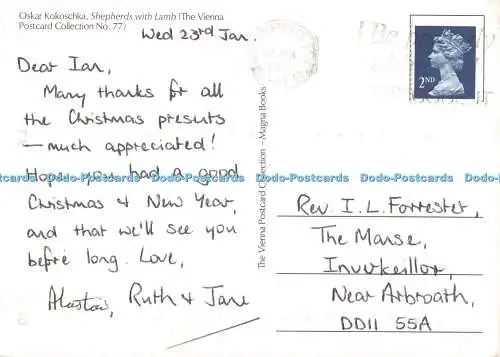 Oskar Kokoschka, Shepherds with Lamb (The Vienna
Postcard Collection No. 77)
Wed 23rd Jan.
Dear Ian,
Many thanks for all
the Christmas presents
– much appreciated!
Hope you had a good
Christmas & New Year,
and that we'll see you
before long. Love,
Alastair, Ruth & Jane
The Vienna Postcard Collection – Magna Books
2ND
Rev. I. L. Forrester,
The Manse,
Inverkeillor,
Near Arbroath,
DD11 5SA
Dodo-Postcards Dodo-Postcards Dodo-Postcards Dodo-Postcards Dodo-Postcards Dodo-Postcards